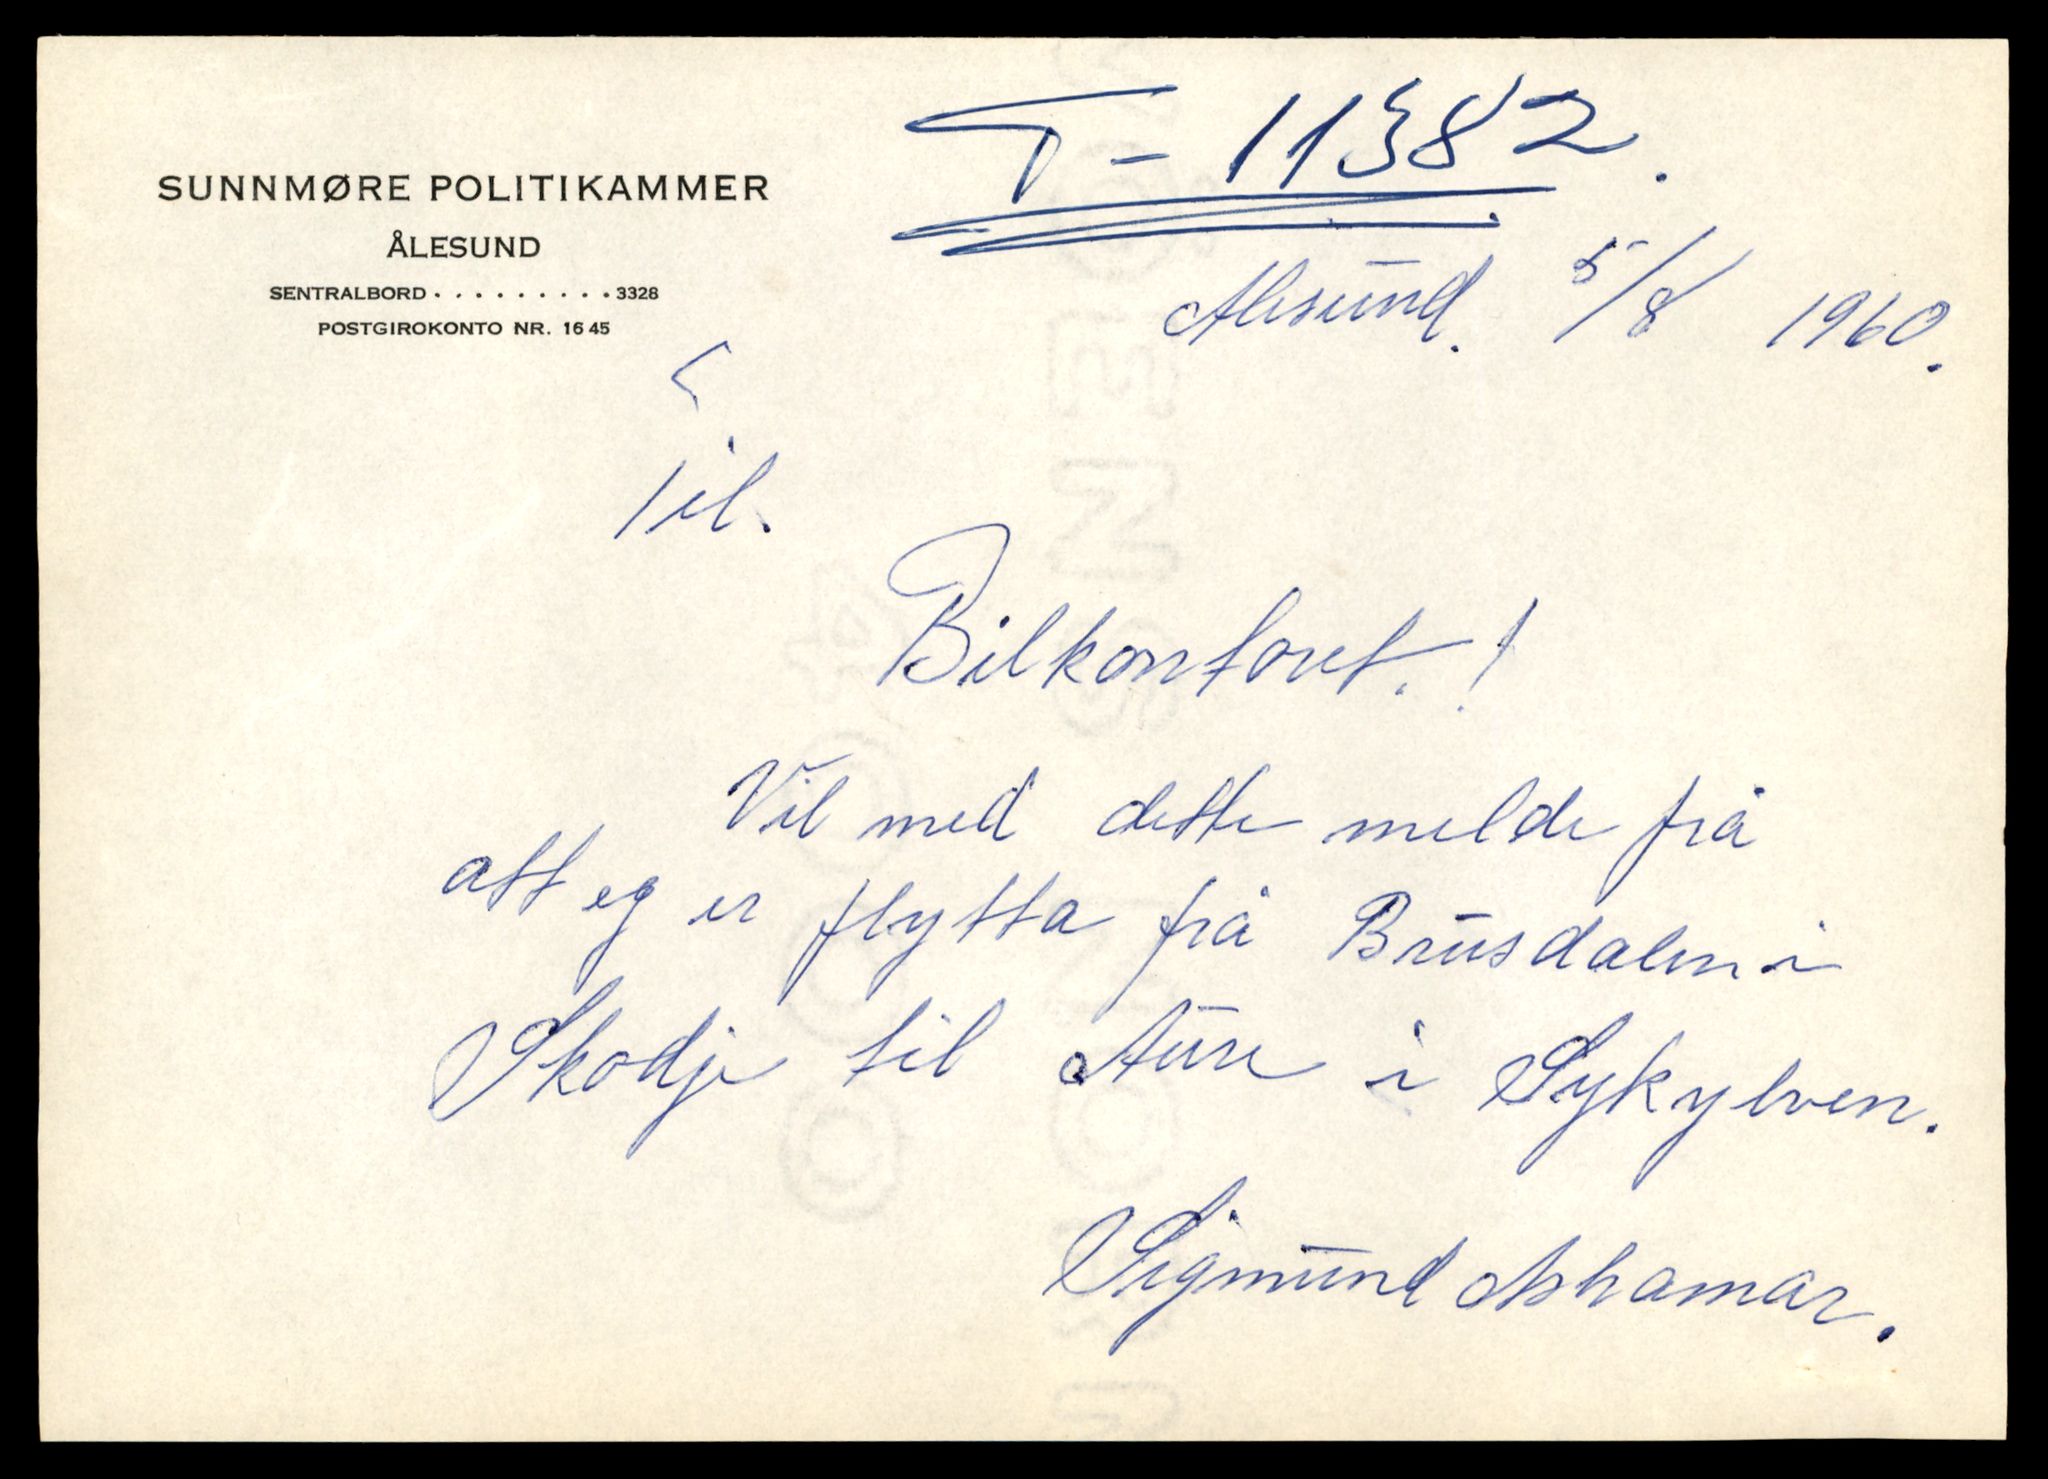 T-11382.
SUNNMØRE POLITIKAMMER
ÅLESUND
SENTRALBORD . . . . . . . . . 3328
POSTGIROKONTO NR. 1645
Ålesund. 5/8 1960.
Til.
Bilkontoret.!
Vil med dette melde frå
att eg er flytta frå Brusdalen i
Skodje til Aure i Sykylven.
Sigmund Ashamar.